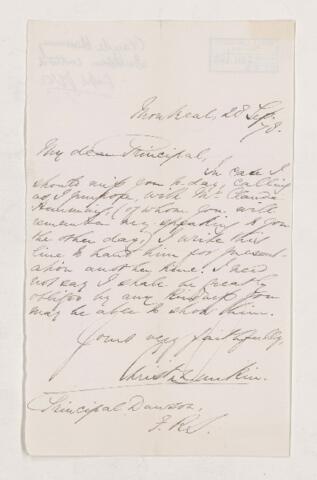 Montreal, 28 Sep
/78.
My dear Principal,
In case I
should miss you to day, calling
as I purpose, with Mr Claude
Hemming, (of whom you will
remember my speaking to you
the other day,) I write this
line to hand him for present-
ation another time. I need
not say I shall be greatly
obliged by any kindness you
may be able to show him.
Yours very faithfully
Christ Dunkin.
Principal Dawson,
F.R.S.